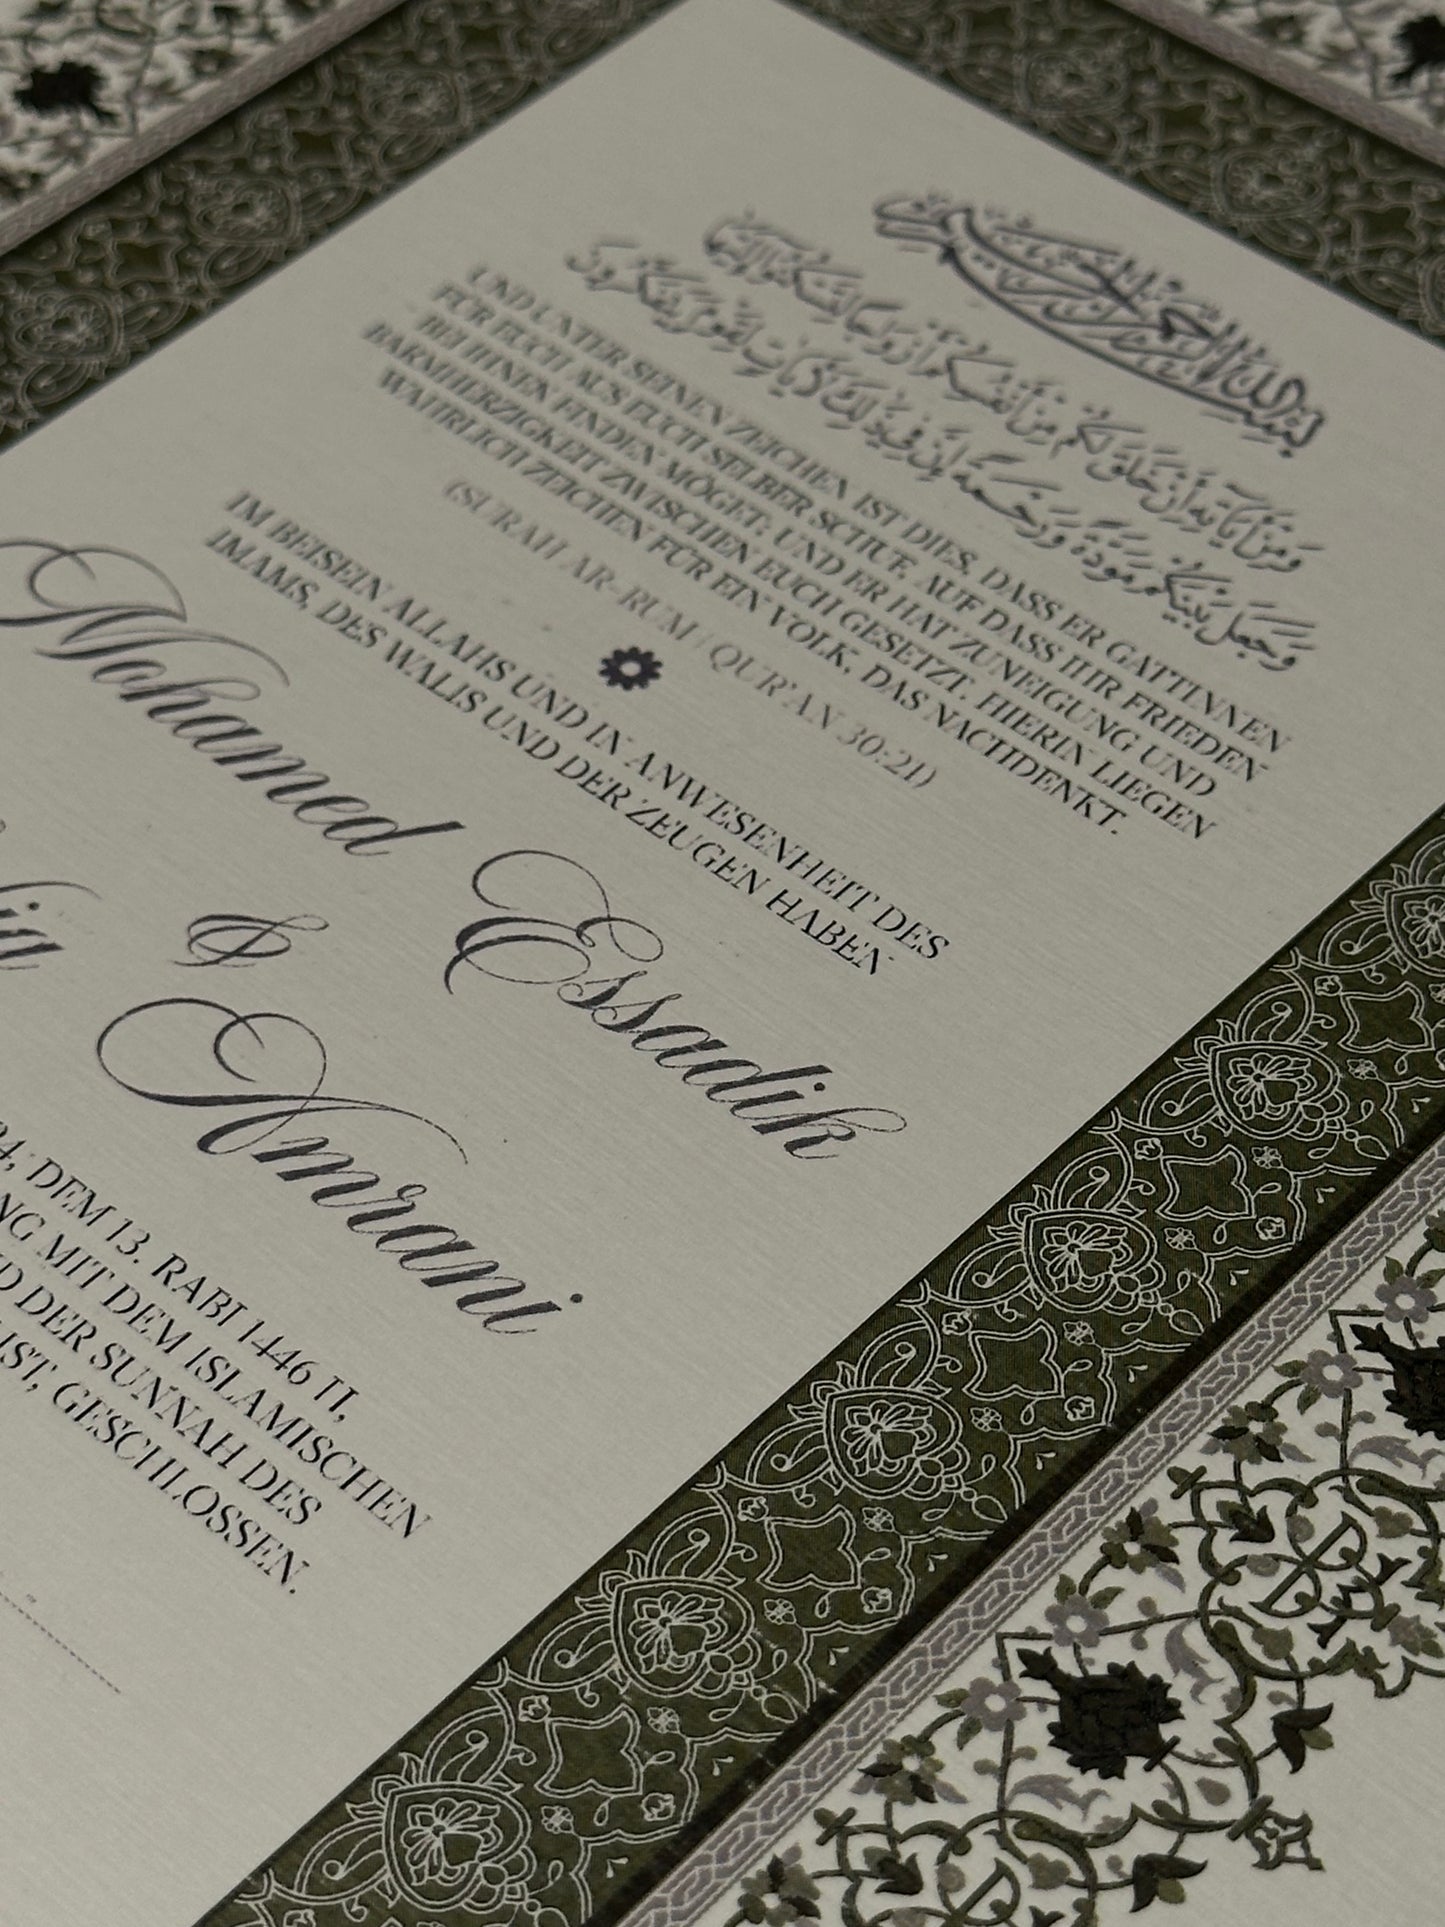 بسم الله الرحمن الرحيم
وَمِنْ آيَاتِهِ أَنْ خَلَقَ لَكُم مِّنْ أَنفُسِكُمْ أَزْوَاجًا لِّتَسْكُنُوا إِلَيْهَا
وَجَعَلَ بَيْنَكُم مَّوَدَّةً وَرَحْمَةً إِنَّ فِي ذَٰلِكَ لَآيَاتٍ لِّقَوْمٍ يَتَفَكَّرُونَ
UND UNTER SEINEN ZEICHEN IST DIES, DASS ER GATTINNEN
FÜR EUCH AUS EUCH SELBER SCHUF, AUF DASS IHR FRIEDEN
BEI IHNEN FINDEN MÖGET; UND ER HAT ZUNEIGUNG UND
BARMHERZIGKEIT ZWISCHEN EUCH GESETZT. HIERIN LIEGEN
WAHRLICH ZEICHEN FÜR EIN VOLK, DAS NACHDENKT.
(SURAH AR-RUM | QUR'AN 30:21)
IM BEISEIN ALLAHS UND IN ANWESENHEIT DES
IMAMS, DES WALIS UND DER ZEUGEN HABEN
Mohamed Essadik
&
Amrani
DEM 13. RABI 1446 H,
MIT DEM ISLAMISCHEN
DER SUNNAH DES
IST, GESCHLOSSEN.